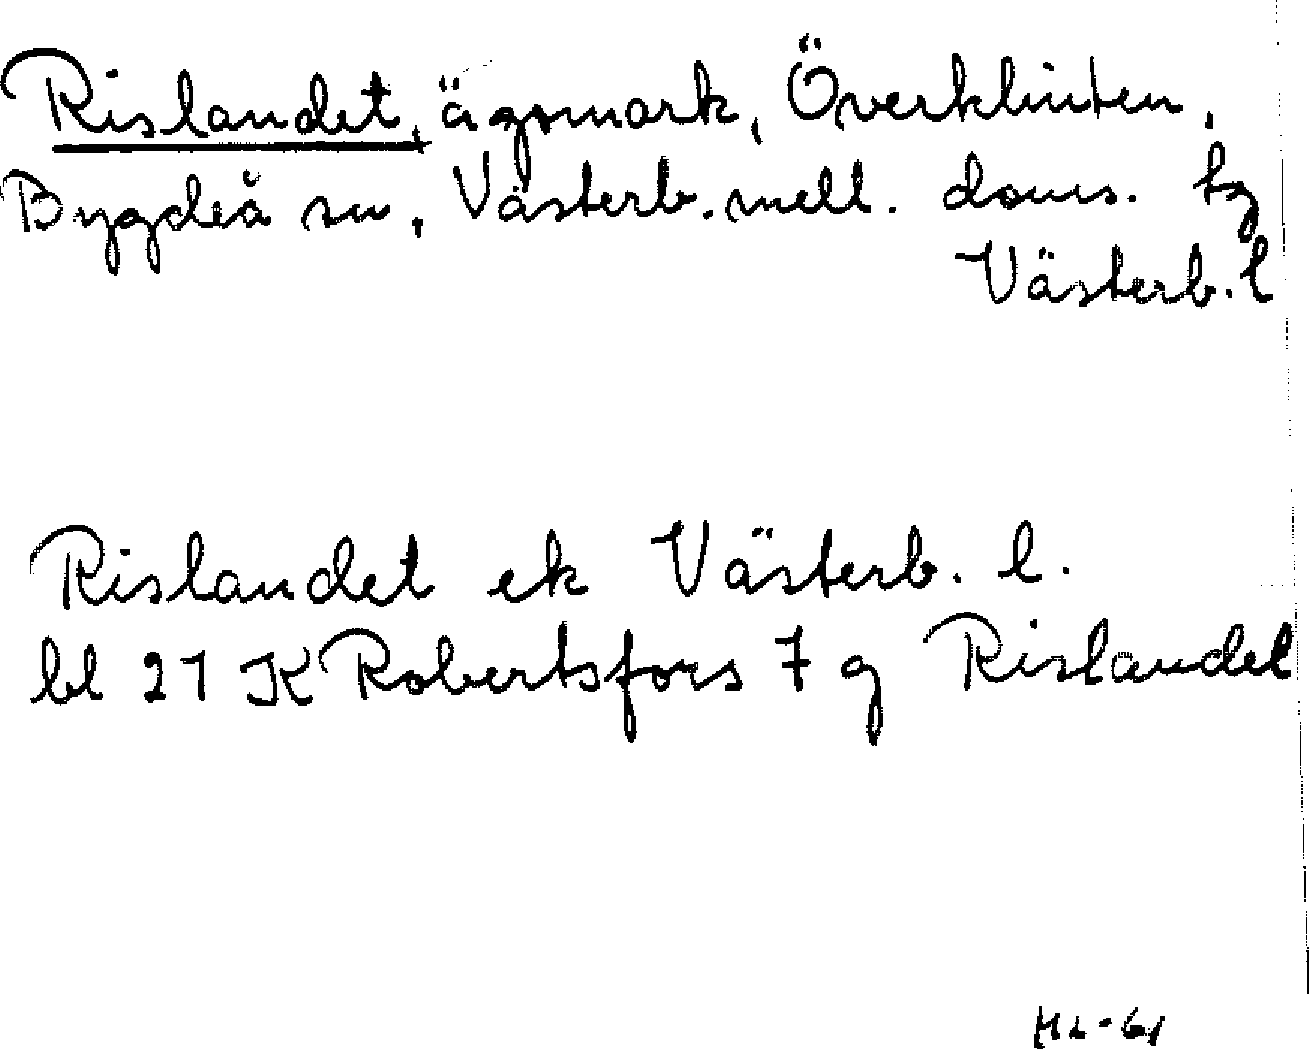 Rislandet, ägomark, Överklinten,
Bygdeå sn, Västerb. mell. doms. tg
Västerb. l
Rislandet ek Västerb. l.
bl 21 K Robertsfors 7 g Rislandet
HL-61